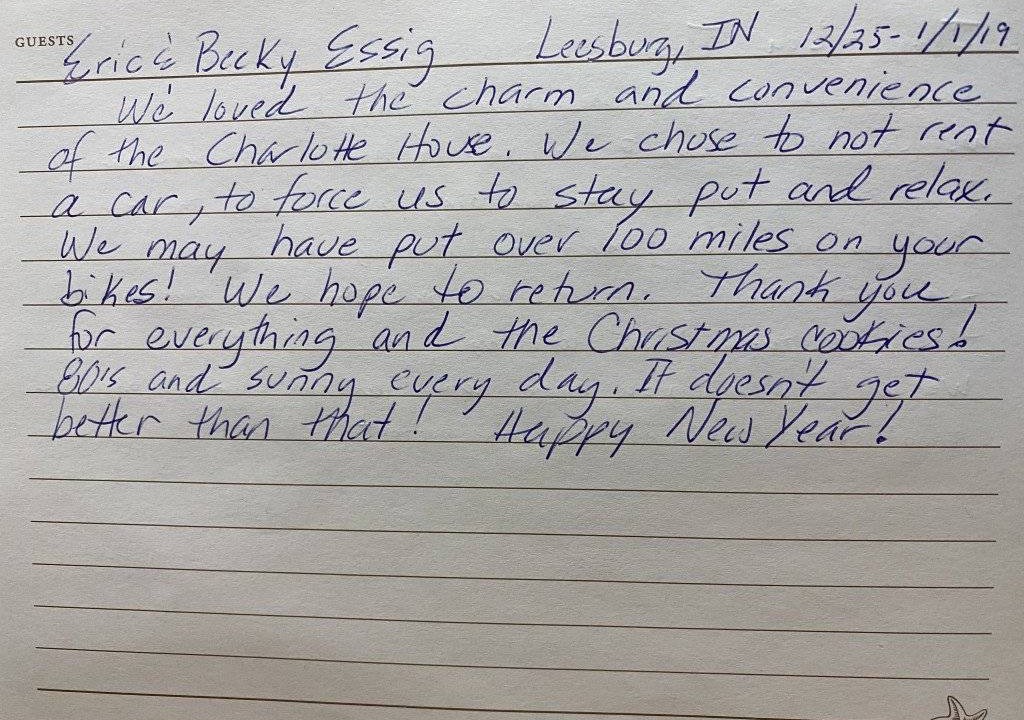 GUESTS Eric & Becky Essig Leesburg, IN 12/25-1/1/19
We loved the charm and convenience
of the Charlotte House. We chose to not rent
a car, to force us to stay put and relax.
We may have put over 100 miles on your
bikes! We hope to return. Thank you
for everything and the Christmas cookies!
80's and sunny every day. It doesn't get
better than that! Happy New Year!